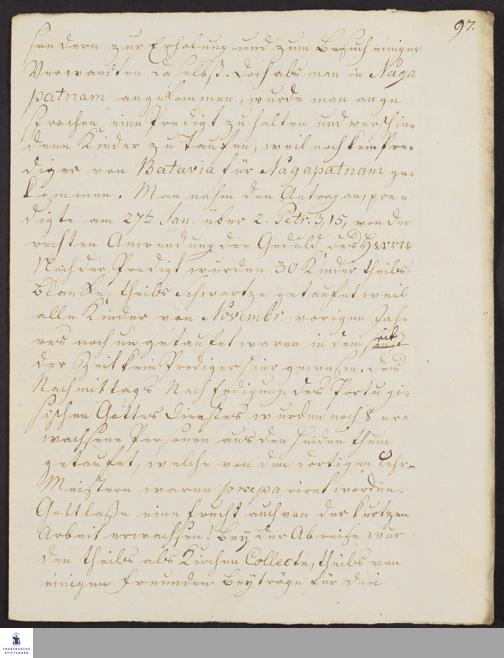 97.
sondern zur Erholung und zum Besuch einiger
Verwandten daselbst. Doch als man in Naga
patnam angekommen, wurde man ange
sprochen, eine Predigt zu halten und verschie-
dene Kinder zu taufen, weil noch kein Pre-
diger von Batavia für Nagapatnam ge-
kommen. Man nahm den Antrag an, pre-
digte am 27ten Jan. über 2. Petr. 3,15, von der
rechten Anwendung der Geduld des Herrn
Nach der Predigt wurden 30 Kinder theils
blancke, theils schwartze getaufet weil
alle Kinder von Novembr vorigen Jah-
res noch ungetaufet waren indem seit
der Zeit kein Prediger hier gewesen. Des
Nachmittags nach Endigung des Portugi-
sischen Gottes Dienstes wurden noch 8 er-
wachsene Personen aus dem Heidenthum
getaufet, welche von den dortigen Lehr-
Meistern waren præpariret worden.
Gott lasse eine Frucht auch von der kurtzen
Arbeit erwachsen! Bey der Abreise wur
den theils als Kirchen Collecte, theils von
einigen Freunden Beyträge für die
FRANCKESCHE
STIFTUNGEN